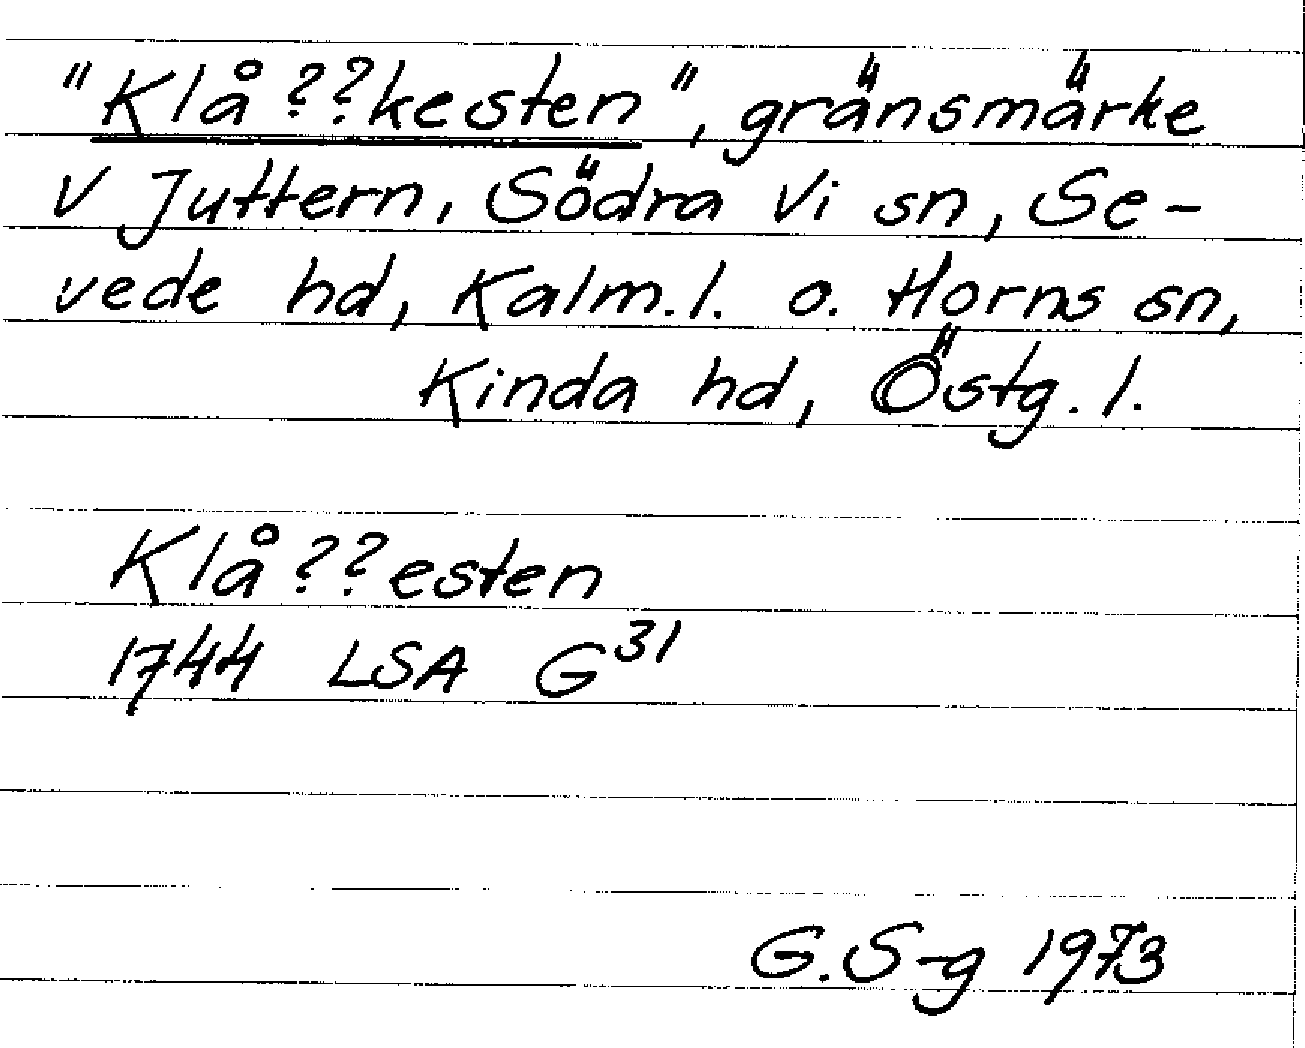 "Klå??kesten", gränsmärke
V Juttern, Södra Vi sn, Se-
vede hd, Kalm. l. o. Horns sn,
Kinda hd, Östg. l.
Klå??esten
1744 LSA G³¹
G.S-g 1973